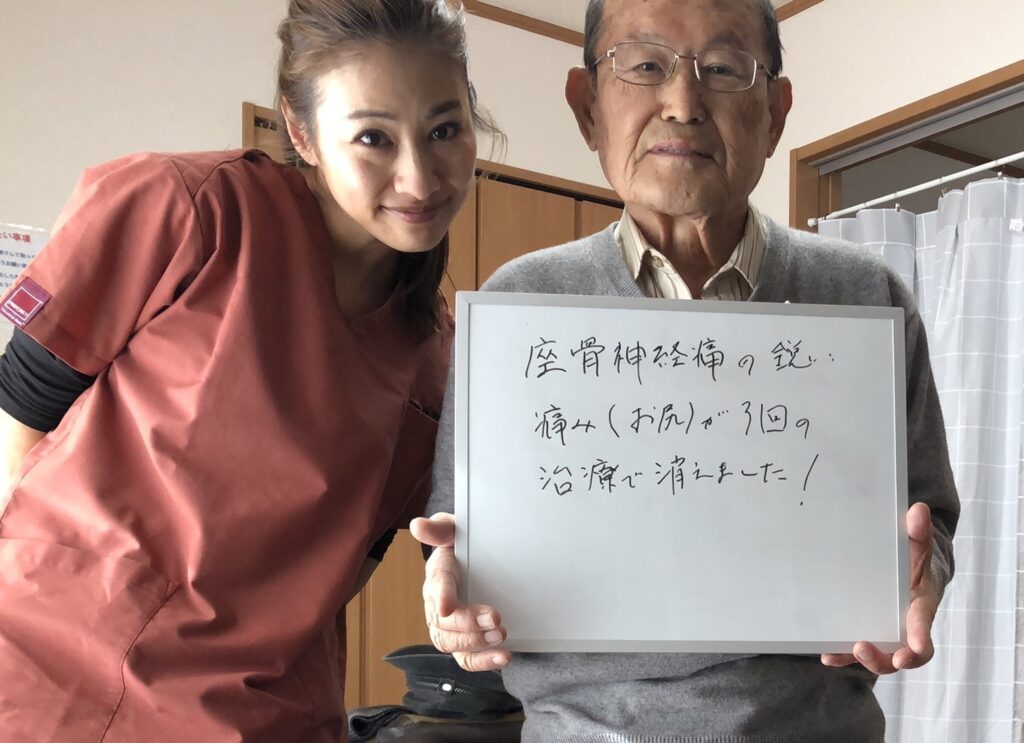 座骨神経痛の鋭い
痛み(お尻)が3回の
治療で消えました!